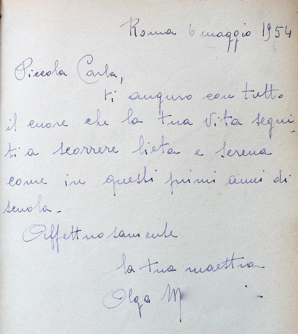 Roma 6 maggio 1954
Piccola Carla,
ti auguro con tutto
il cuore che la tua vita segui-
ti a scorrere lieta e serena
come in questi primi anni di
scuola.
Affettuosamente
la tua maestra
Olga M